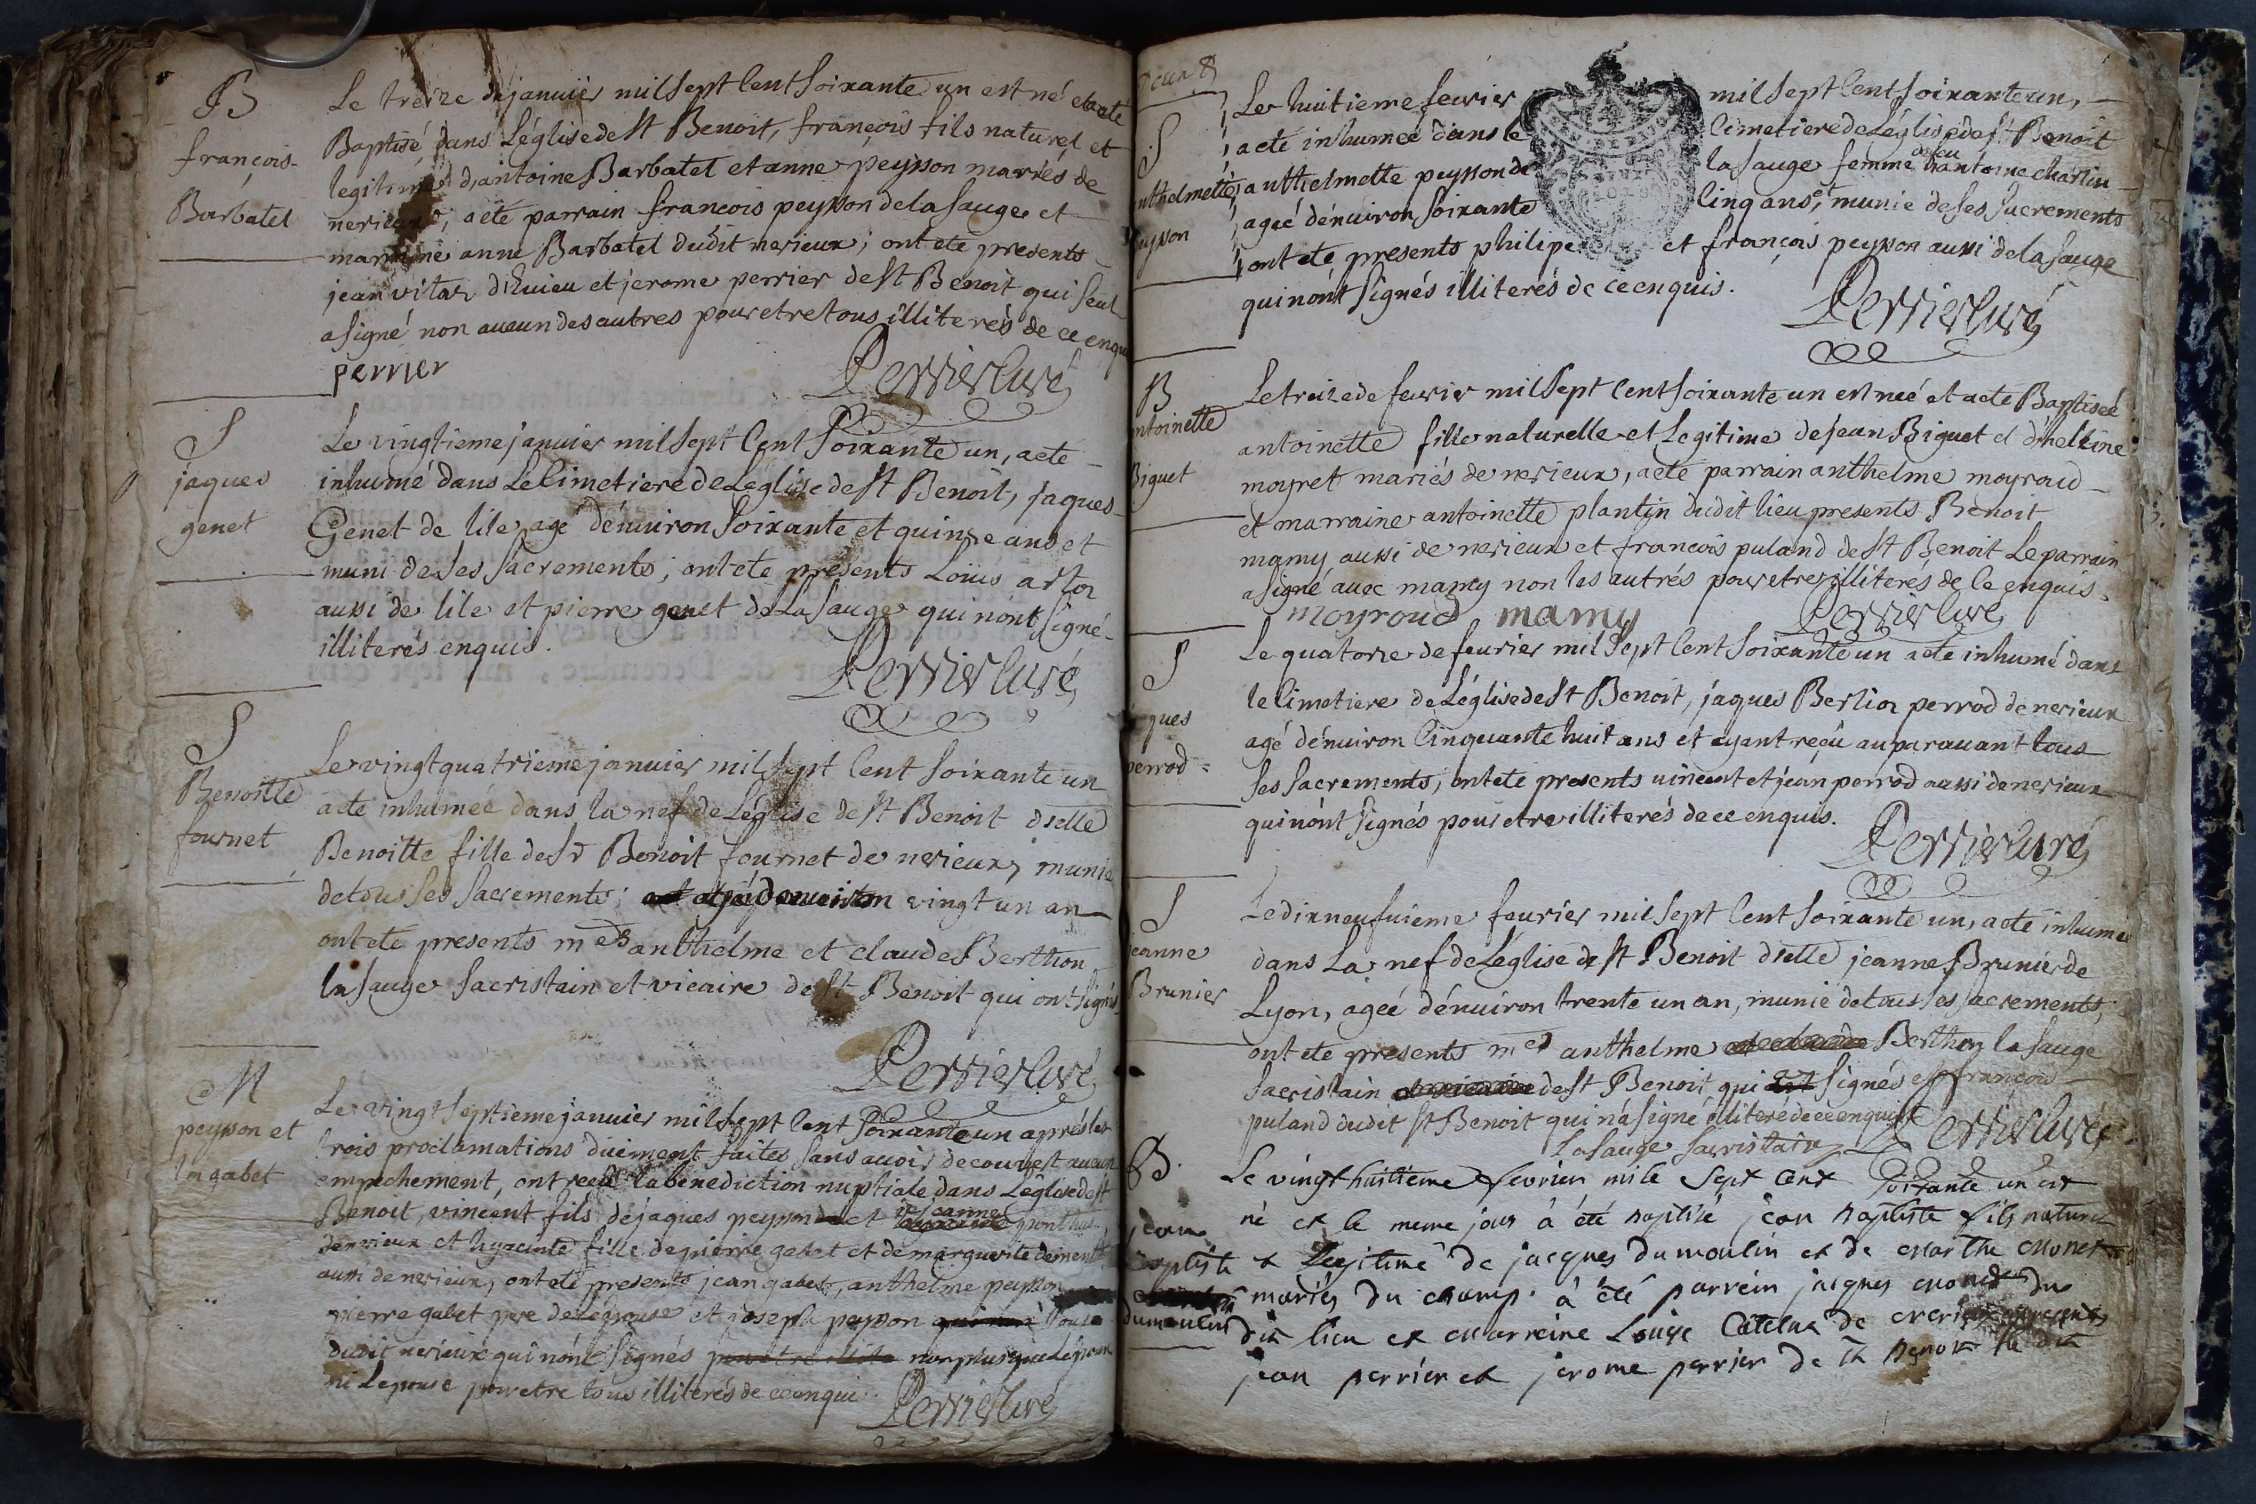 B
françois
Barbatet
Le treize de janvier mil sept Cent Soixante un est né et a eté
Baptisé dans L'église de St Benoit, françois fils naturel et
legitime d'antoine Barbatet et anne peysson mariés de
nerieux, a eté parrain francois peysson de la sauge et
marraine anne Barbatet dudit nerieux; ont eté presents
jean vitar d'iluieu et jerome perrier de St Benoit qui seul
a signé non aucun des autres pour etre tous illiterés de ce enquis
perrier Perrier Curé
S
jaques
genet
Le vingtieme janvier mil sept Cent Soixante un, a eté
inhumé dans Le Cimetiere de L'eglise de St Benoit, jaques
Genet de lile agé d'enuiron Soixante et quinze ans et
muni de ses sacrements, ont eté présents Loüis
aussi de lile et pierre genet de La Sauge qui n'ont signé
illiterés enquis.
Perrier Curé
S
Benoitte
fournet
Le vingt quatrieme janvier mil sept Cent soixante un
a eté inhumeé dans la nef de L'église de St Benoit dselle
Benoitte fille de Sr Benoit fournet de nerieux, munie
de tous ses sacrements; vingt un an
ont eté presents mes anthelme et claude Berthon
la sauge sacristain et vicaire de St Benoit qui ont signés
Perrier Curé
M
peysson et
la gabet
Le vingt septieme janvier mil sept Cent soixante un aprés les
trois proclamations düement faites sans avoir decouvert aucun
empechement, ont receu la benediction nuptiale dans L'église de St
Benoit, vincent fils de jaques peysson et de jeanne
de nerieux et hyacinte fille de pierre gabet et de marguerite
aussi de nerieux, ont eté presents jean gabet, anthelme peysson
pierre gabet pere de L'epouse et joseph peysson tous
dudit nerieux qui n'ont signés non plus que L'epoux
ni L'epouse pour etre tous illiterés de ce enquis.
Perrier Curé
S
anthelmette
peysson
Le huitieme feurier mil sept Cent soixante un,
a eté inhumeé dans le Cimetiere de L'église de St Benoit
anthelmette peysson de la sauge femme de feu antoine charlin
ageé d'enuiron soixante Cinq ans, munie de ses sacrements
ont eté presents philipe et françois peysson aussi de la sauge
qui n'ont signés illiterés de ce enquis.
Perrier Curé
B
antoinette
Biguet
Le treize de feurier mil sept Cent soixante un est neé et a eté Baptiseé
antoinette fille naturelle et Legitime de jean Biguet et
moyret mariés de nerieux, a eté parrain anthelme moyroud
et marraine antoinette plantin dudit lieu presents Benoit
mamy aussi de nerieux et francois puland de St Benoit Le parrain
a signé auec mamy non les autrés pour etre illiterés de ce enquis.
moyroud mamy Perrier Curé
S
jaques
perrod
Le quatorze de feurier mil sept Cent Soixante un a eté inhumé dans
le Cimetiere de L'église de St Benoit, jaques Berlior perrod de nerieux
agé d'enuiron Cinquante huit ans et ayant reçû auparauant tous
ses sacrements, ont eté presents uincent et jean perrod aussi de nerieux
qui n'ont signés pour etre illiterés de ce enquis.
Perrier Curé
S
jeanne
Brunier
Le dix neufuieme feurier mil sept Cent soixante un, a eté inhumeé
dans La nef de L'église de St Benoit dselle jeanne Brunier de
Lyon, ageé d'enuiron trente un an, munie de tous ses sacrements,
ont eté presents mes anthelme Berthon la sauge
sacristain de St Benoit qui signés et françois
puland dudit St Benoit qui n'a signé illiteré de ce enquis
La Sauge Sacristain Perrier Curé
B.
jean
Baptiste
dumoulin
Le vingt huitieme fevrier mile sept Cent soixante un est
né et le meme jour à été Baptisé jean Baptiste fils naturel
et Legitime de jacques Dumoulin et de Marthe Monet
mariés du champ. à été parrein jacques monet du
dit lieu et Marreine Louise de
jean perrier et jerome perrier de St Benoit